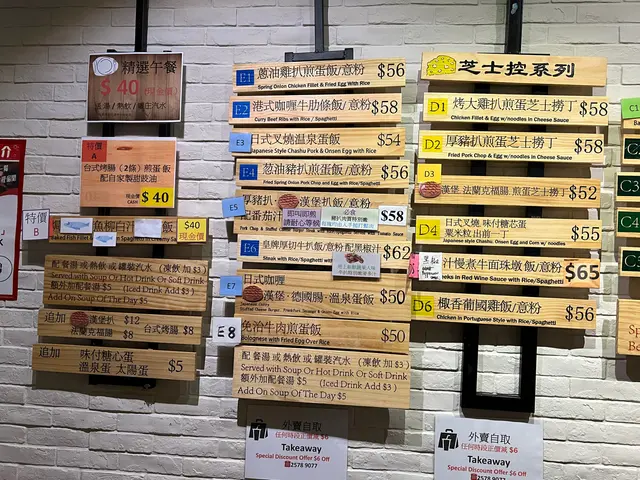 精選午餐
$40 (現金價)
特價
A
台式烤腸(2條)煎蛋飯
配自家製甜豉油
現金價 Cash
$40
特價
B
魚柳白汁
飯/意
$40
現金價
配餐湯或熱飲或罐裝汽水 (凍飲加$3)
Served with Soup Or Hot Drink Or Soft Drink
額外加配餐湯$5 (Iced Drink Add $3)
Add On Soup Of The Day $5
追加
漢堡扒 $12
法蘭克福腸 $8
台式烤腸 $8
追加
味付糖心蛋
溫泉蛋 太陽蛋
$5
E1 蔥油雞扒煎蛋飯/意粉 $56
Spring Onion Chicken Fillet & Fried Egg With Rice
E2 港式咖喱牛肋條飯/意粉 $58
Curry Beef Ribs with Rice / Spaghetti
E3 日式叉燒溫泉蛋飯 $54
Japanese Style Chashu Pork & Onsen Egg with Rice
E4 蔥油豬扒煎蛋飯/意粉 $56
Fried Spring Onion Pork Chop and Egg with Rice/Spaghetti
E5 厚豬扒 漢堡扒飯/意粉
即叫即煎
請耐心等候
$58
E6 皇牌厚切牛扒飯/意粉 配黑椒汁 $62
Steak with Rice/Spaghetti
E7 日式咖喱
漢堡·德國腸·溫泉蛋飯 $50
E8 免治牛肉煎蛋飯 $50
Bolognese with Fried Egg Over Rice
配餐湯或熱飲或罐裝汽水 (凍飲加$3)
Served with Soup Or Hot Drink Or Soft Drink
額外加配餐湯$5 (Iced Drink Add $3)
Add On Soup Of The Day $5
外賣自取
任何時段正價減$6
Takeaway
Special Discount Offer $6 Off
2578 9077
芝士控系列
D1 烤大雞扒煎蛋芝士撈丁 $58
Chicken Fillet & Fried Egg w/noodles in Cheese Sauce
D2 厚豬扒煎蛋芝士撈丁 $58
Fried Pork Chop & Egg w/noodles in Cheese Sauce
D3 漢堡·法蘭克福腸·煎蛋芝士撈丁 $52
D4 日式叉燒·味付糖心蛋
粟米粒出前一丁 $55
Japanese style Chashu, Onsen Egg and Corn w/ noodles
汁慢煮牛面珠墩飯/意粉 $65
Cheeks in Red Wine Sauce with Rice/Spaghetti
D6 椰香葡國雞飯/意粉 $56
Chicken in Portuguese Style with Rice/Spaghetti
外賣自取
任何時段正價減$6
Takeaway
Special Discount Offer $6 Off
2578 9077
C1